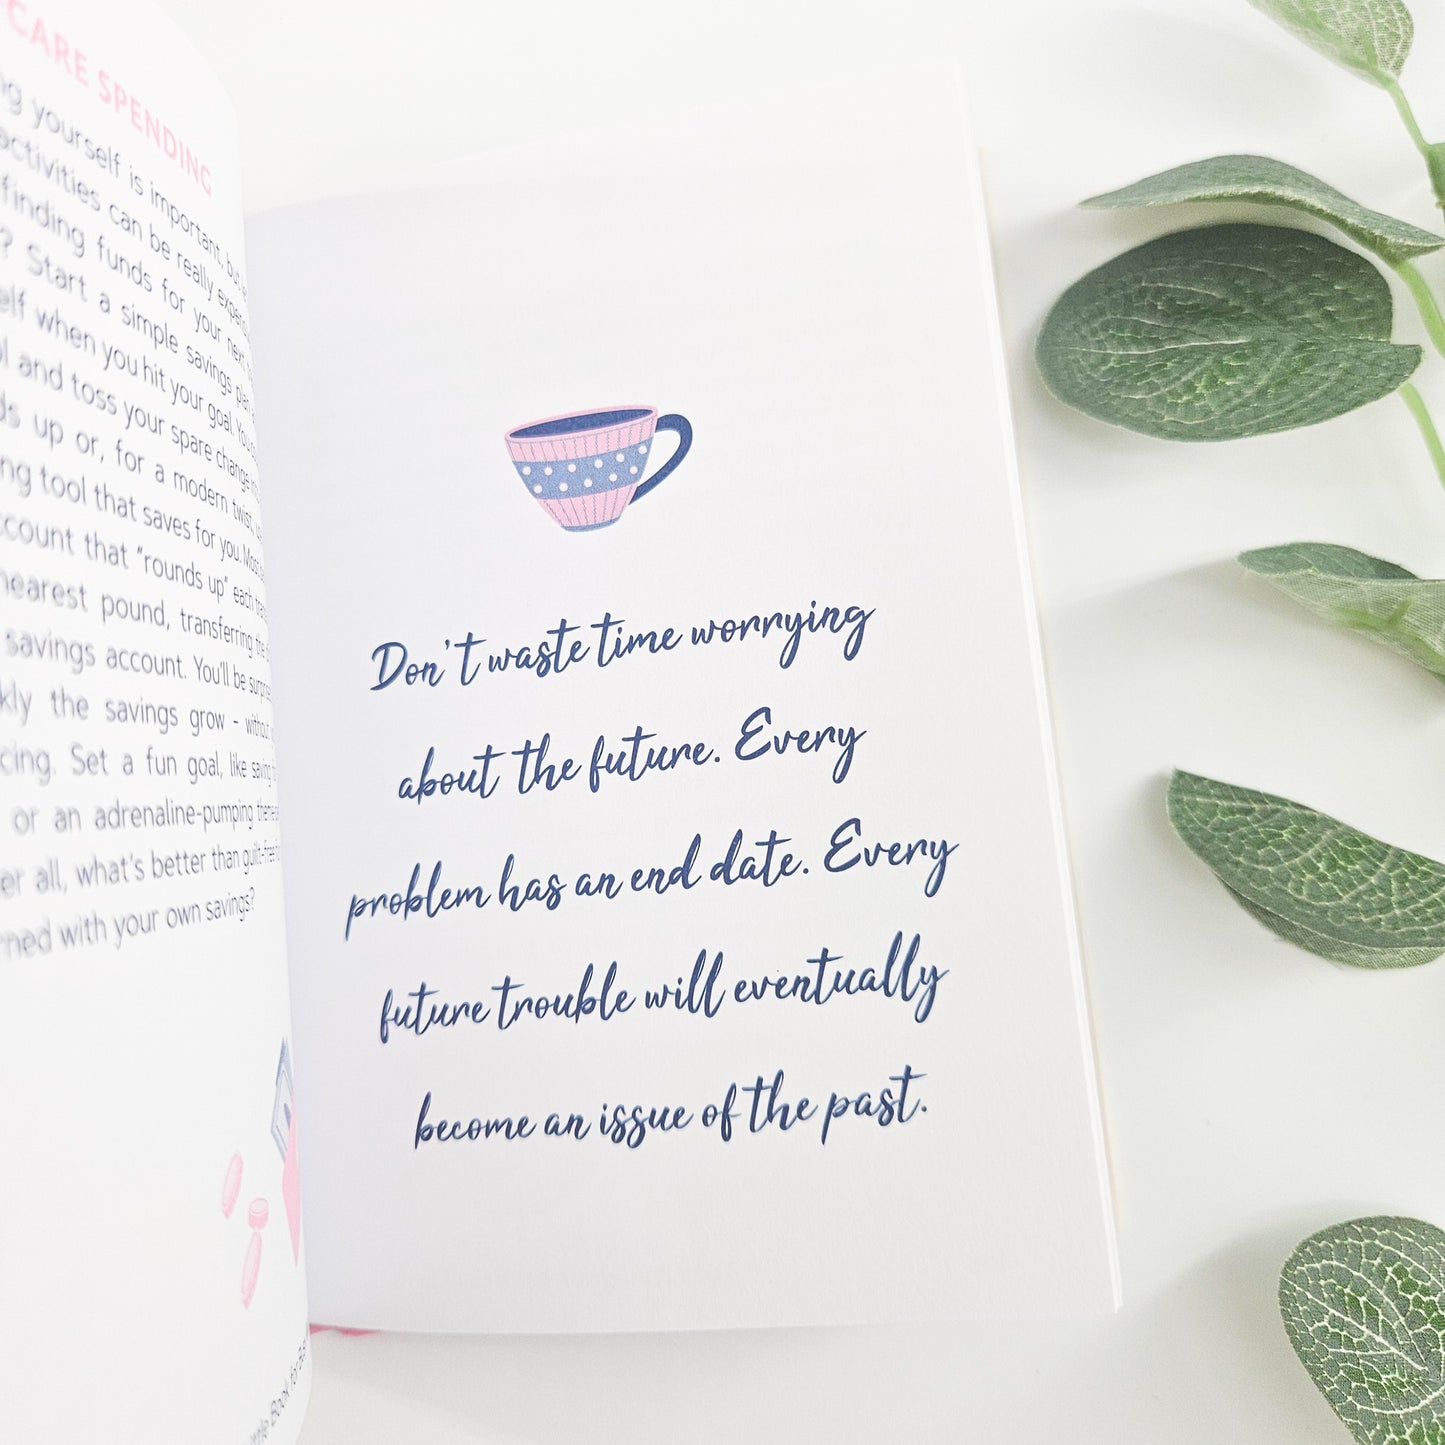 CARE SPENDING
yourself is important, but
activities can be really
finding funds for your next
? Start a simple savings plan
when you hit your goal. You
and toss your spare change
up or, for a modern twist,
tool that saves for you. Most
account that "rounds up" each
nearest pound, transferring the
savings account. You'll be
the savings grow - without
Set a fun goal, like saving
or an adrenaline-pumping theme
all, what's better than guilt-free
with your own savings?
Book for
Don't waste time worrying
about the future. Every
problem has an end date. Every
future trouble will eventually
become an issue of the past.